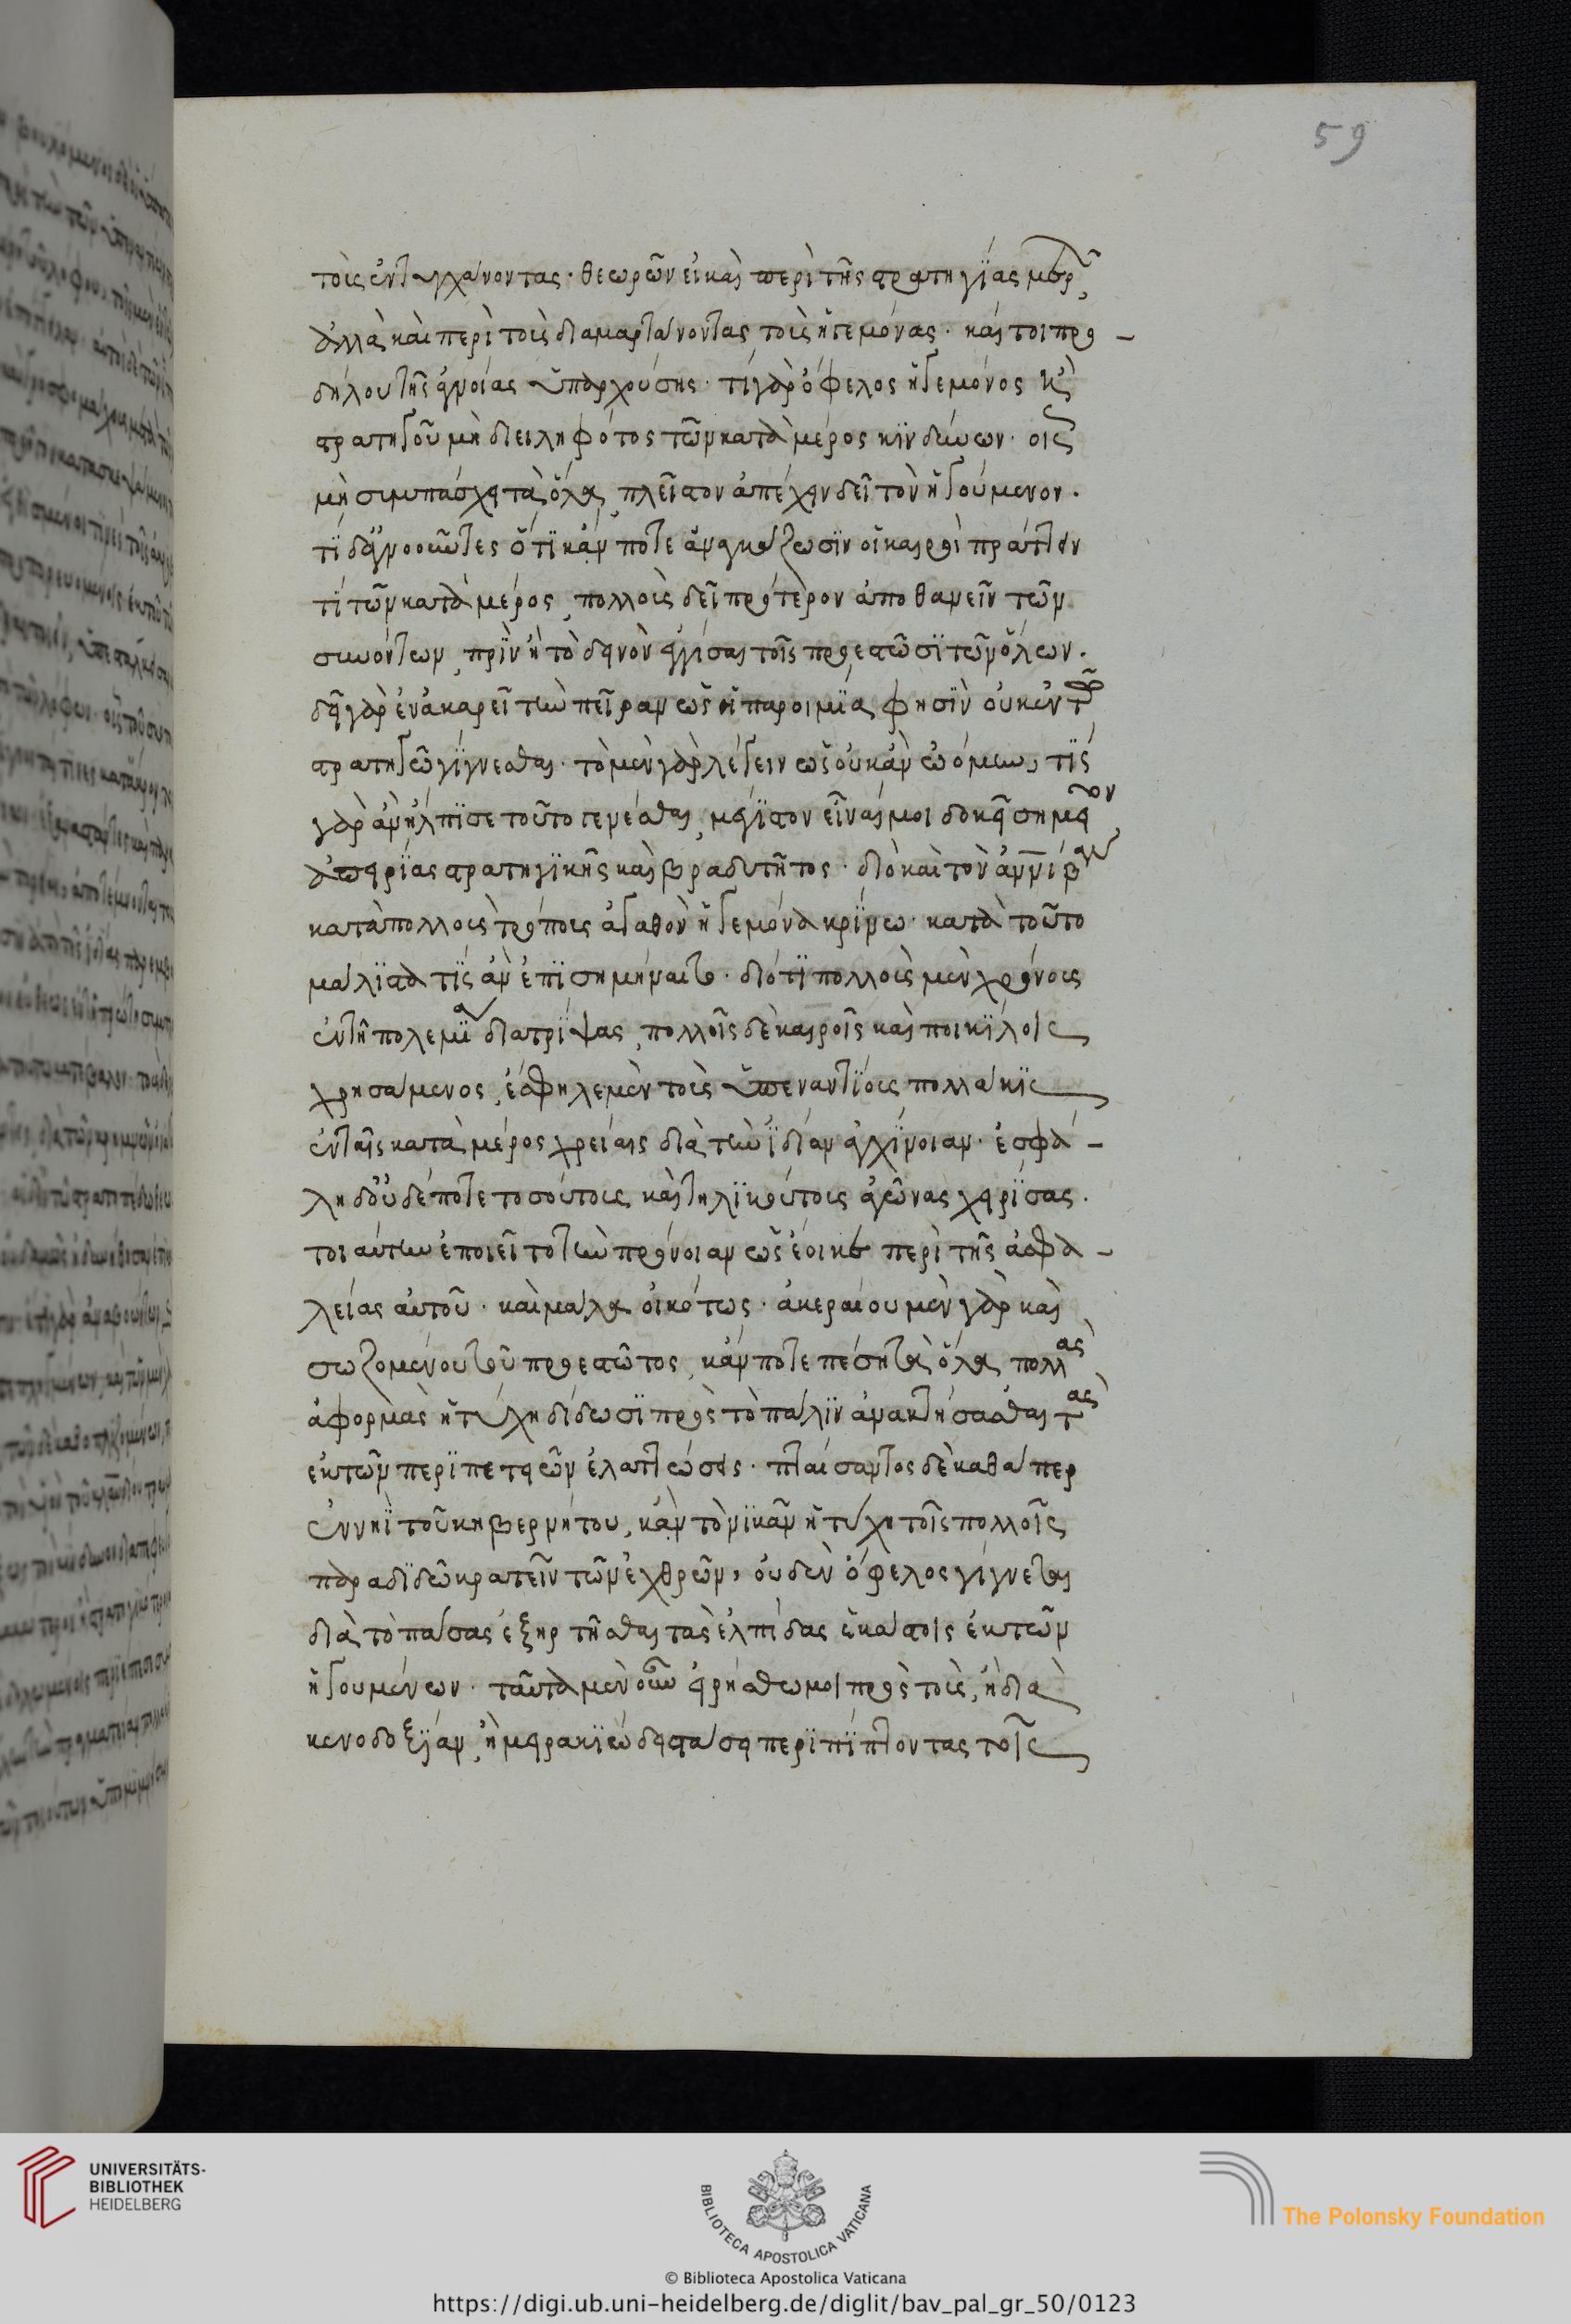 τοὺς ἐντυγχάνοντας· θεωρῶν εἰκαὶ περὶ τῆς στρατηγίας μόνον,
ἀλλὰ καὶ περὶ τοὺς διαμαρτάνοντας τοὺς ἡγεμόνας· καίτοι προ-
δήλου τῆς ἀγνοίας ὑπαρχούσης· τί γὰρ ὄφελος ἡγεμόνος καὶ
στρατηγοῦ μὴ διειληφότος τῶν κατὰ μέρος κινδύνων· οἷς
μὴ συμπάσχει τὰ ὅλα, πλεῖστον ἀπέχειν δεῖ τὸν ἡγούμενον.
τί δ' ἀγνοοῦντες ὅτι κἄν ποτε ἀναγκάζωσιν οἱ καιροὶ πράττειν
τὶ τῶν κατὰ μέρος, πολλοὺς δεῖ πρότερον ἀποθανεῖν τῶν
συνόντων, πρὶν ἢ τὸ δεινὸν ἐγγίσαι τοῖς προεστῶσι τῶν ὅλων.
δεῖ γὰρ ἐν ἀκαρεῖ τὴν πεῖραν ὡς ἡ παροιμία φησὶν οὐκ ἐν τῷ
στρατηγῷ γίγνεσθαι· τὸ μὲν γὰρ λέγειν ὡς οὐκ ἂν ᾠόμην, τίς
γὰρ ἂν ἤλπισε τοῦτο γενέσθαι, μέγιστον εἶναί μοι δοκεῖ σημεῖον
ἀπειρίας στρατηγικῆς καὶ βραδυτῆτος· διὸ καὶ τὸν ἀννίβαν
κατὰ πολλοὺς τρόπους ἀγαθὸν ἡγεμόνα κρίνω· κατὰ τοῦτο
μάλιστα τὶς ἂν ἐπισημήναιτο· διότι πολλοὺς μὲν χρόνους
ἐν τῇ πολεμία διατρίψας, πολλοῖς δὲ καιροῖς καὶ ποικίλοις
χρησάμενος, ἔσφηλε μὲν τοὺς ὑπεναντίους πολλάκις
ἐν ταῖς κατὰ μέρος χρείαις διὰ τὴν ἰδίαν ἀγχίνοιαν· ἐσφά-
λη δ' οὐδέποτε τοσούτους καὶ τηλικούτους ἀγῶνας χειρίσας.
τοιαύτην ἐποιεῖτο τὴν πρόνοιαν ὡς ἔοικε περὶ τῆς ἀσφα-
λείας αὐτοῦ· καὶ μάλα εἰκότως· ἀκεραίου μὲν γὰρ καὶ
σωζομένου τοῦ προεστῶτος, κἄν ποτε πέσῃ τὰ ὅλα, πολλὰς
ἀφορμὰς ἡ τύχη δίδωσι πρὸς τὸ πάλιν ἀνακτήσασθαι τὰς
ἐκ τῶν περιπετειῶν ἐλαττώσεις· πταίσαντος δὲ καθάπερ
ἐν νηὶ τοῦ κηβερνήτου, κἂν τὸ νικᾶν ἡ τύχη τοῖς πολλοῖς
παραδιδῷ κρατεῖν τῶν ἐχθρῶν, οὐδὲν ὄφελος γίγνεται
διὰ τὸ πάσας ἐξηρτῆσθαι τὰς ἐλπίδας ἑκάστοις ἐκ τῶν
ἡγουμένων· ταῦτα μὲν οὖν εἰρήσθω μοι πρὸς τοὺς, ἢ διὰ
κενοδοξίαν, ἢ μειρακιώδει στάσει περιπίπτοντας τοῖς
59
UNIVERSITÄTS-
BIBLIOTHEK
HEIDELBERG
BIBLIOTECA APOSTOLICA VATICANA
The Polonsky Foundation
© Biblioteca Apostolica Vaticana
https://digi.ub.uni-heidelberg.de/diglit/bav_pal_gr_50/0123